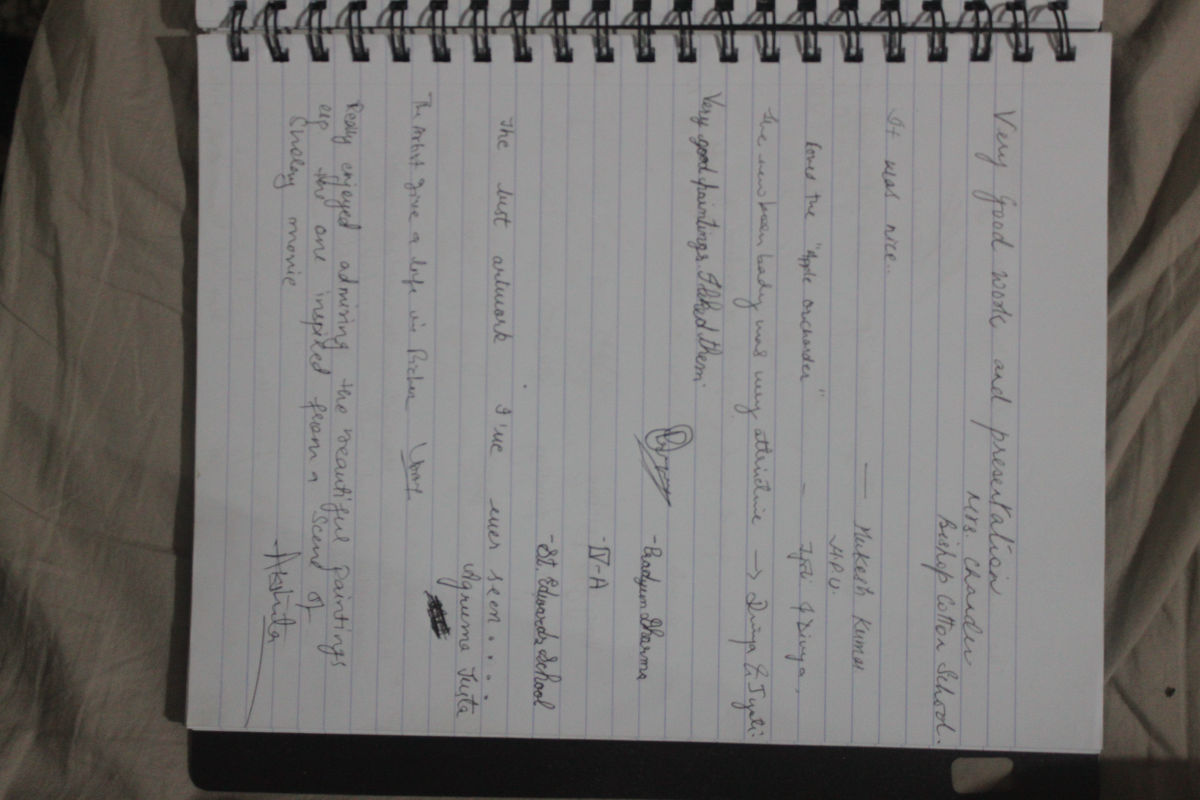 Very good work and presentation
Mrs. Chander
Bishop Cotton School.
It was nice..
— Mukesh Kumar
H.P.U.
Loved the "Apple orcharder"
– Jyoti & Divya,
The new born baby was very attractive → Divya & Jyoti.
Very good paintings. I liked them.
- Pradyum Sharma
- IV-A
- St. Edwards School
The best artwork I've ever seen....
Agrima
The Artist give a life in
Really enjoyed admiring the beautiful paintings
esp the one inspired from a scene of
movie
- Akshita